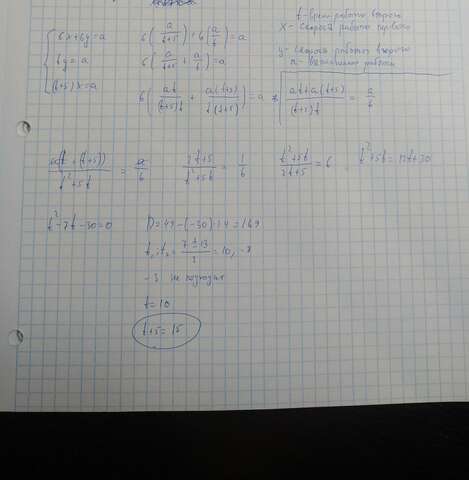 t - время работы второго
x - скорость работы первого
y - скорость работы второго
n - величина работы
{ 6x+6y=a
ty=a
(t+5)x=a
6(a/(t+5)) + 6(a/t) = a
6(a/(t+5) + a/t) = a
6(at/((t+5)t) + a(t+5)/(t(t+5))) = a
(at+a(t+5))/((t+5)t) = a/6
a(t+(t+5))/(t²+5t) = a/6
(2t+5)/(t²+5t) = 1/6
(t²+5t)/(2t+5) = 6
t²+5t=12t+30
t²-7t-30=0
D=49-(-30)·4=169
t₁;t₂=(7±13)/2=10,-3
-3 не подходит
t=10
t+5=15